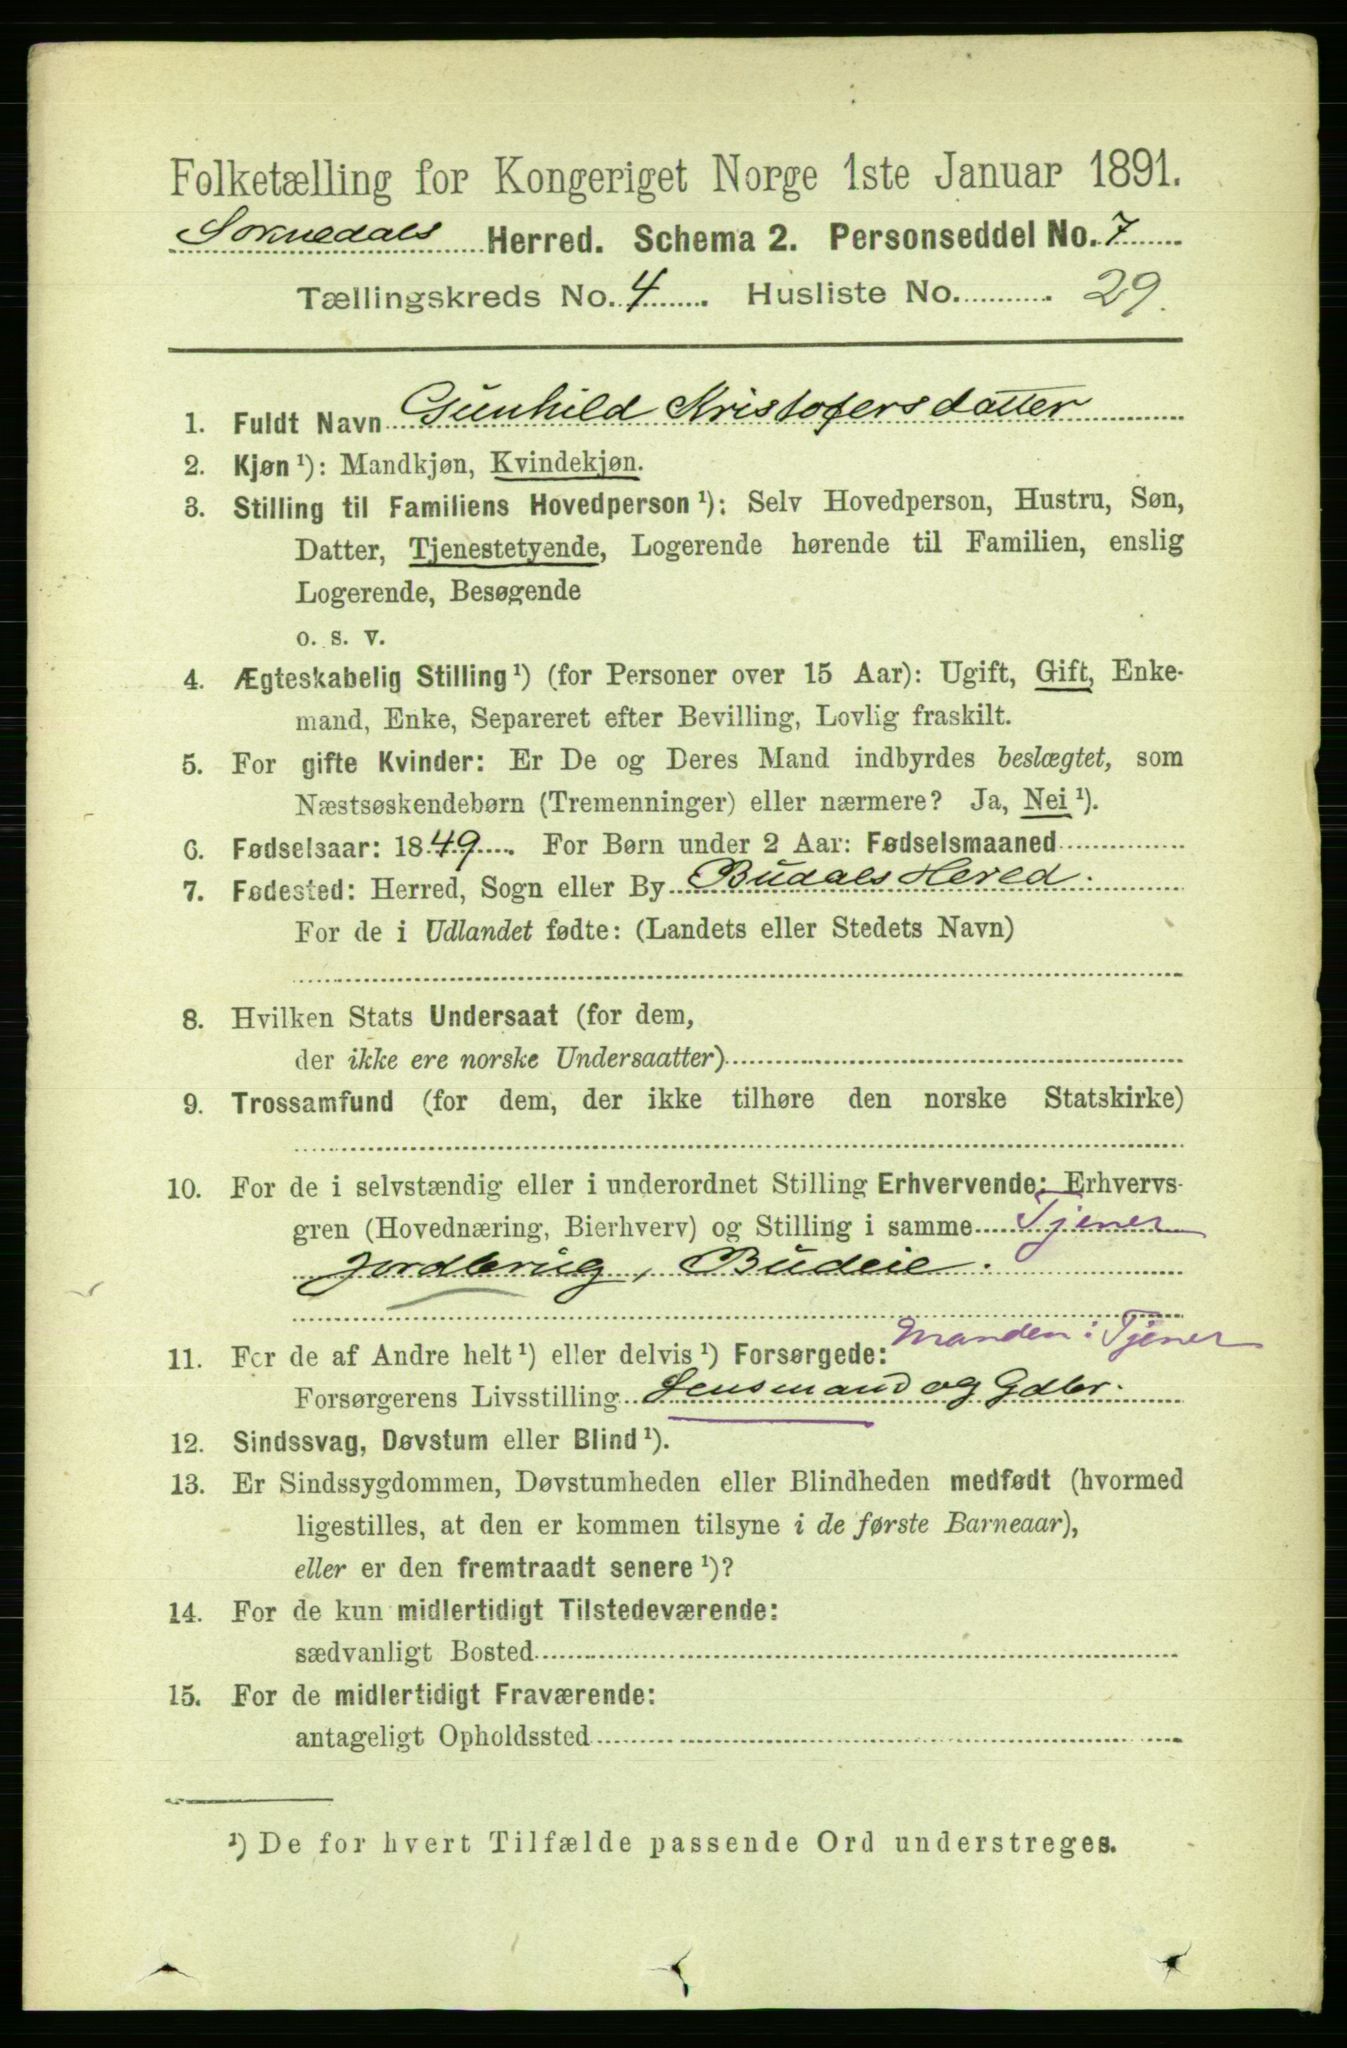 Folketælling for Kongeriget Norge 1ste Januar 1891.
Soknedals Herred. Schema 2. Personseddel No. 7
Tællingskreds No. 4. Husliste No. 29.
1. Fuldt Navn Gunhild Kristofersdatter
2. Kjøn ¹): Mandkjøn, Kvindekjøn.
3. Stilling til Familiens Hovedperson ¹): Selv Hovedperson, Hustru, Søn,
Datter, Tjenestetyende, Logerende hørende til Familien, enslig
Logerende, Besøgende
o. s. v.
4. Ægteskabelig Stilling ¹) (for Personer over 15 Aar): Ugift, Gift, Enke-
mand, Enke, Separeret efter Bevilling, Lovlig fraskilt.
5. For gifte Kvinder: Er De og Deres Mand indbyrdes beslægtet, som
Næstsøskendebørn (Tremenninger) eller nærmere? Ja, Nei ¹).
6. Fødselsaar: 1849. For Børn under 2 Aar: Fødselsmaaned
7. Fødested: Herred, Sogn eller By Budals Hered.
For de i Udlandet fødte: (Landets eller Stedets Navn)
8. Hvilken Stats Undersaat (for dem,
der ikke ere norske Undersaatter)
9. Trossamfund (for dem, der ikke tilhøre den norske Statskirke)
10. For de i selvstændig eller i underordnet Stilling Erhvervende: Erhvervs-
gren (Hovednæring, Bierhverv) og Stilling i samme Tjener
Jordbrug, Budeie.
Manden: Tjener
11. For de af Andre helt ¹) eller delvis ¹) Forsørgede:
Forsørgerens Livsstilling Lensmand og Gdbr.
12. Sindssvag, Døvstum eller Blind ¹).
13. Er Sindssygdommen, Døvstumheden eller Blindheden medfødt (hvormed
ligestilles, at den er kommen tilsyne i de første Barneaar),
eller er den fremtraadt senere ¹)?
14. For de kun midlertidigt Tilstedeværende:
sædvanligt Bosted
15. For de midlertidigt Fraværende:
antageligt Opholdssted
¹) De for hvert Tilfælde passende Ord understreges.